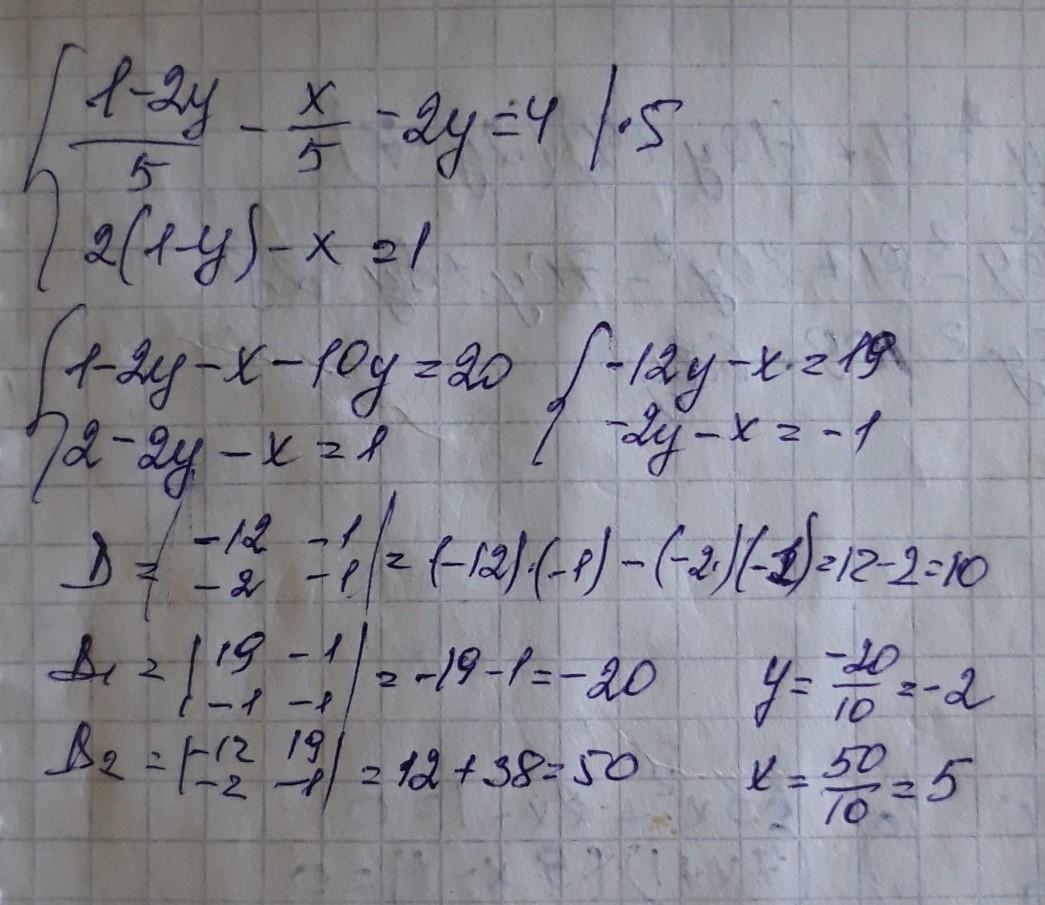 { (1-2y)/5 - x/5 - 2y = 4 | · 5
2(1-y) - x = 1
{ 1-2y-x-10y=20 { -12y-x=19
2-2y-x=1 -2y-x=-1
D = | -12 -1 | = (-12)·(-1)-(-2)(-1)=12-2=10
-2 -1
D1 = | 19 -1 | = -19-1=-20 y = -20/10 = -2
-1 -1
D2 = | -12 19 | = 12+38=50 x = 50/10 = 5
-2 -1